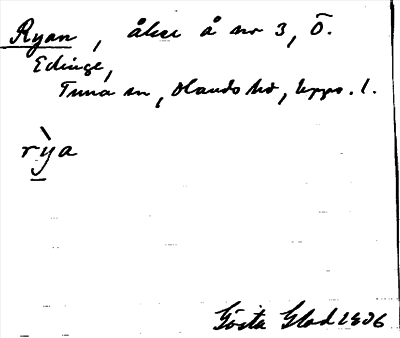 Ryan, åker å no 3, Ö.
Edinge,
Tuna sn, Olands hd, Upps. l.
rỳa
Gösta Glad 1906